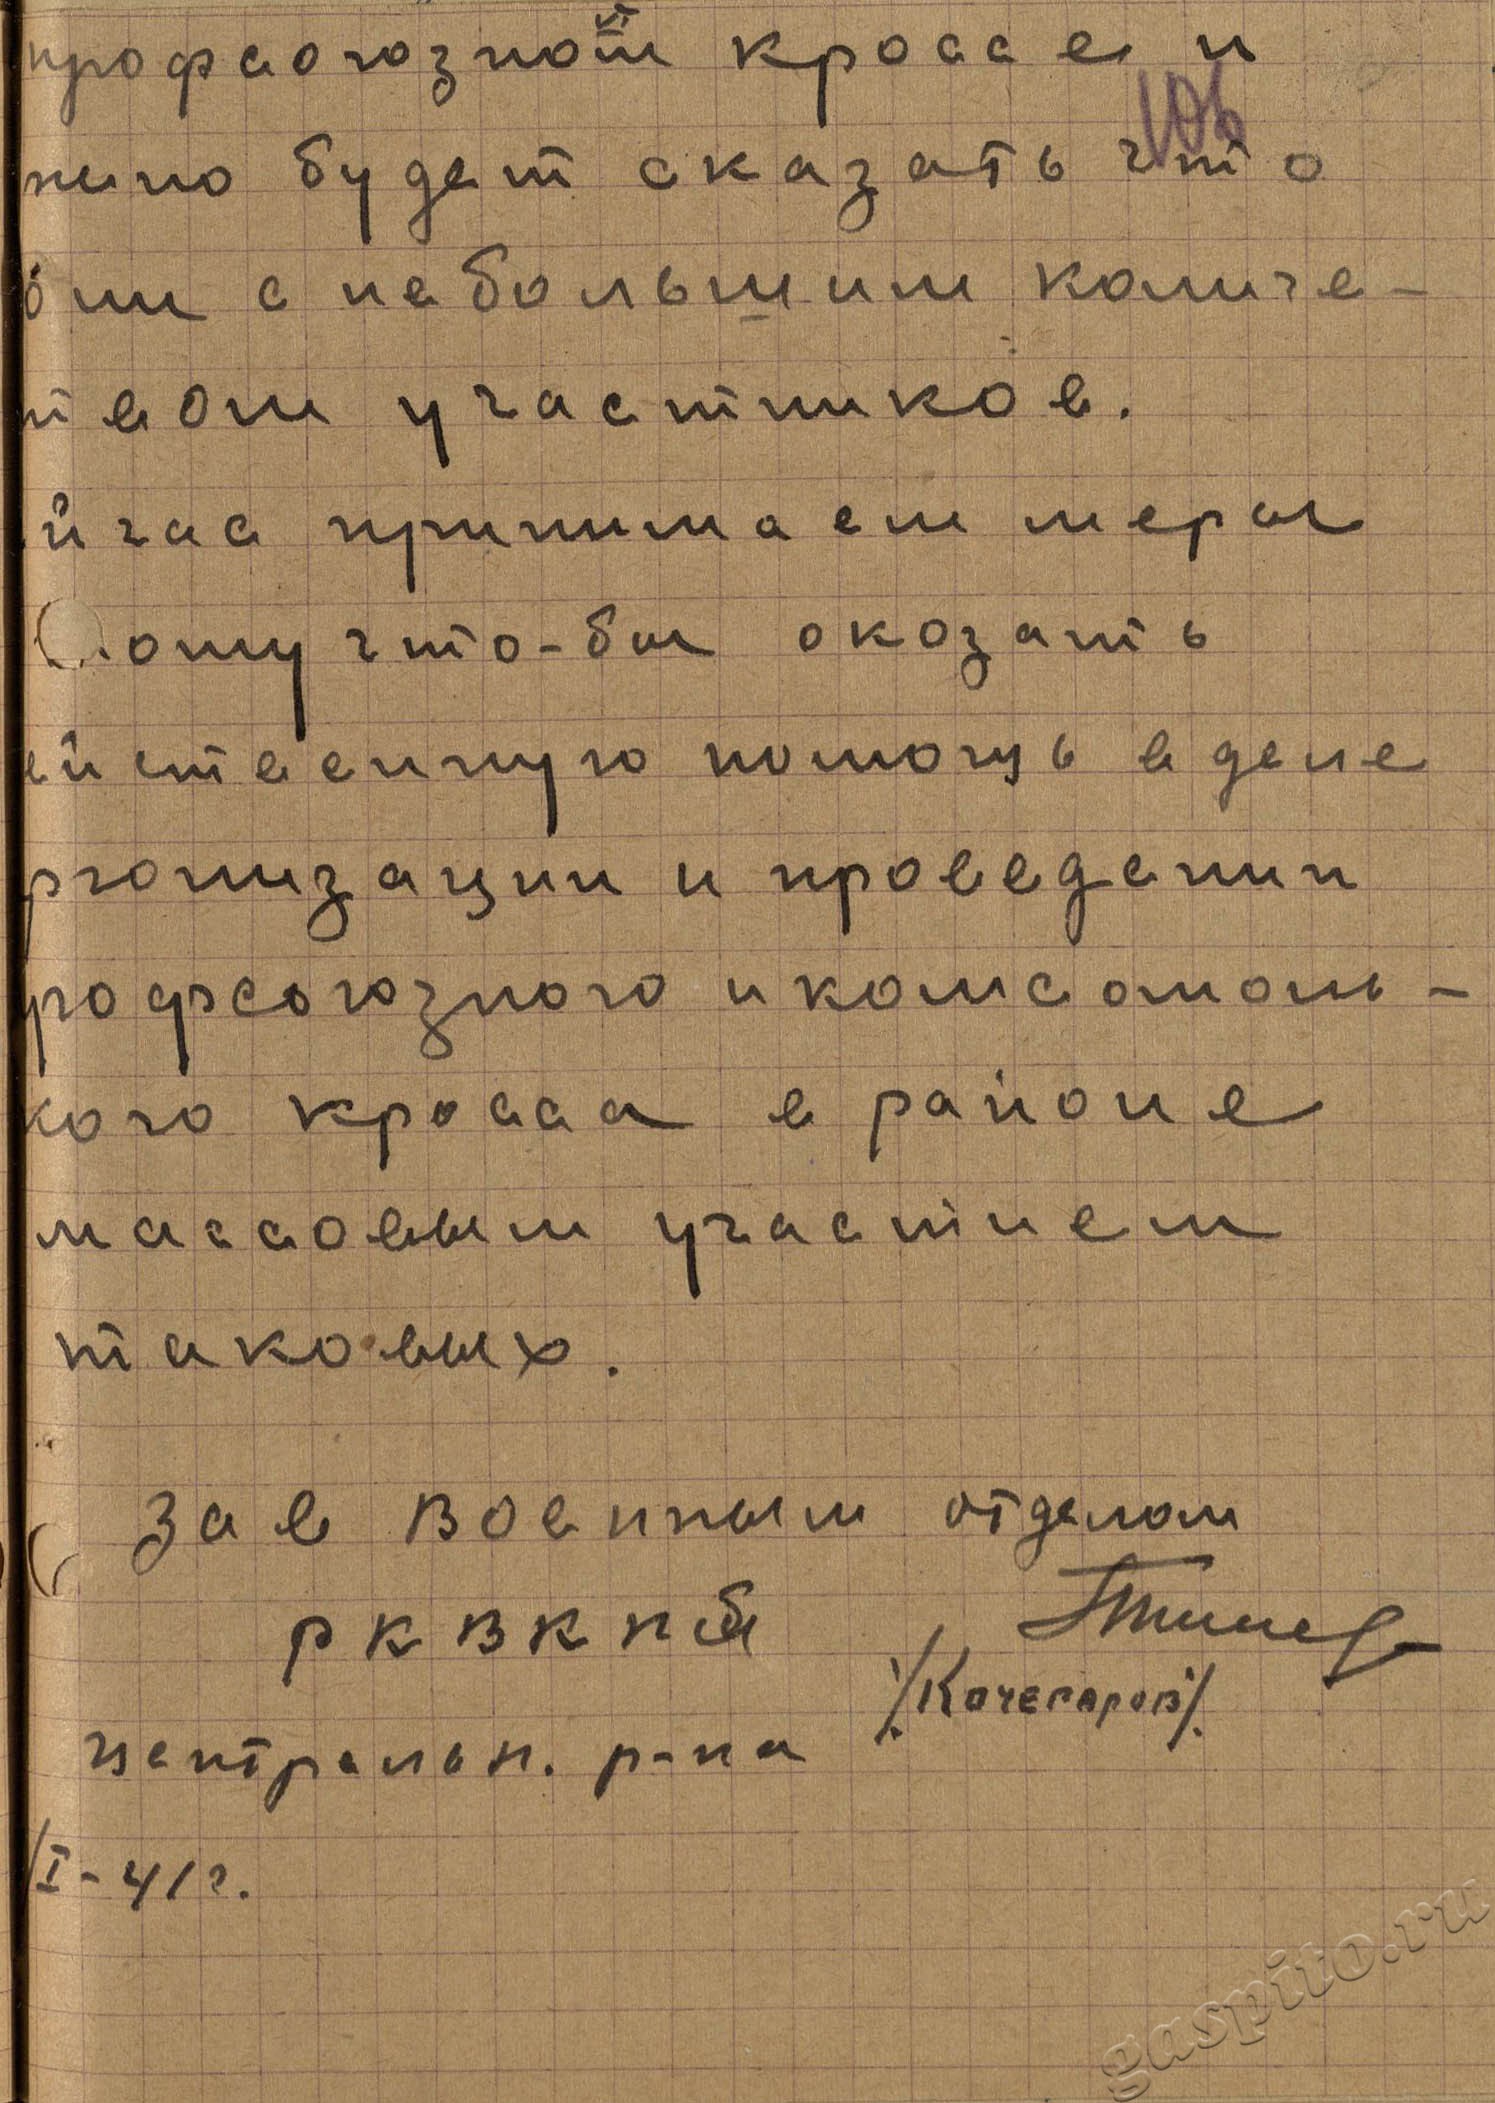 профсоюзном кроссе и
106
нено будет сказать что
они с небольшим количе-
твом участников.
йчас принимаем меры
тому что-бы окозать
ейственную помощь в деле
рганизации и проведении
рофсоюзного и комсомоль-
кого кросса в районе
массовым участием
таковых.
Зав военным отделом
РК ВКП(б)
/Кочегаров/.
централь н. р-на
/I-41г.
gaspito.ru